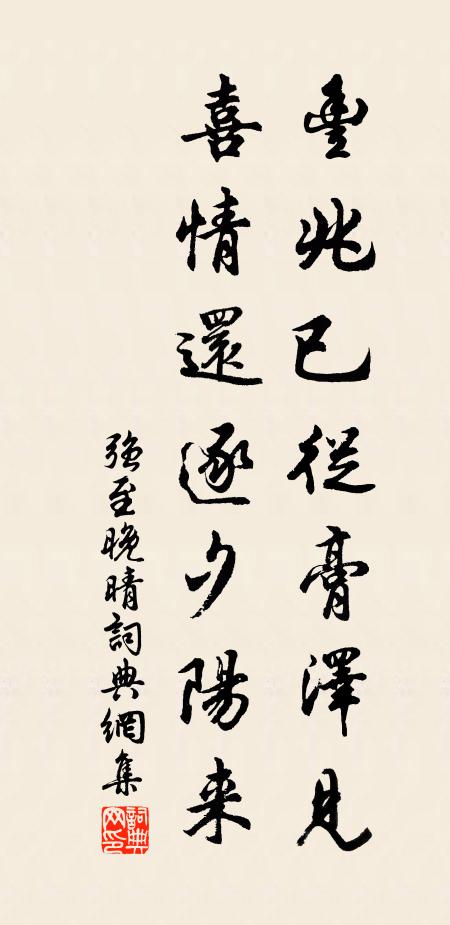 豐兆已從膏澤見
喜情還逐夕陽来
强至晚晴詞典網集
詞典网印